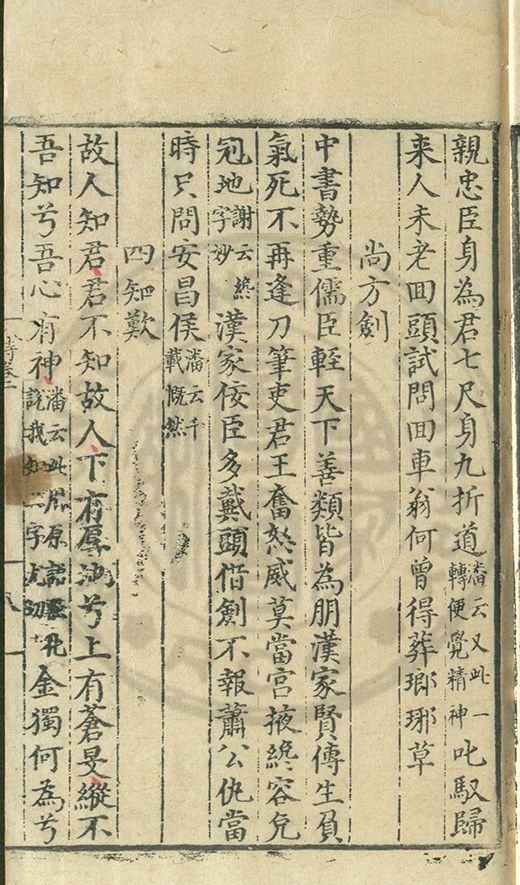 親忠臣身為君七尺身九折道潘云又此一轉便覺精神叱馭歸
来人未老囬頭試問囬車翁何曾得葬瑯琊草
尚方劍
中書勢重儒臣輊天下善類皆為朋漢家賢傅生負
氣死不再逢刀筆吏君王奮怒威莫當宫掖終容免
冠地謝云終字妙漢家佞臣多戴頭借劍不報蕭公仇當
時只問安昌侯潘云千載慨然
四知歎
故人知君君不知故人下有厚地兮上有蒼旻縱不
吾知兮吾心有神潘云此用原語字尤切金獨何為兮